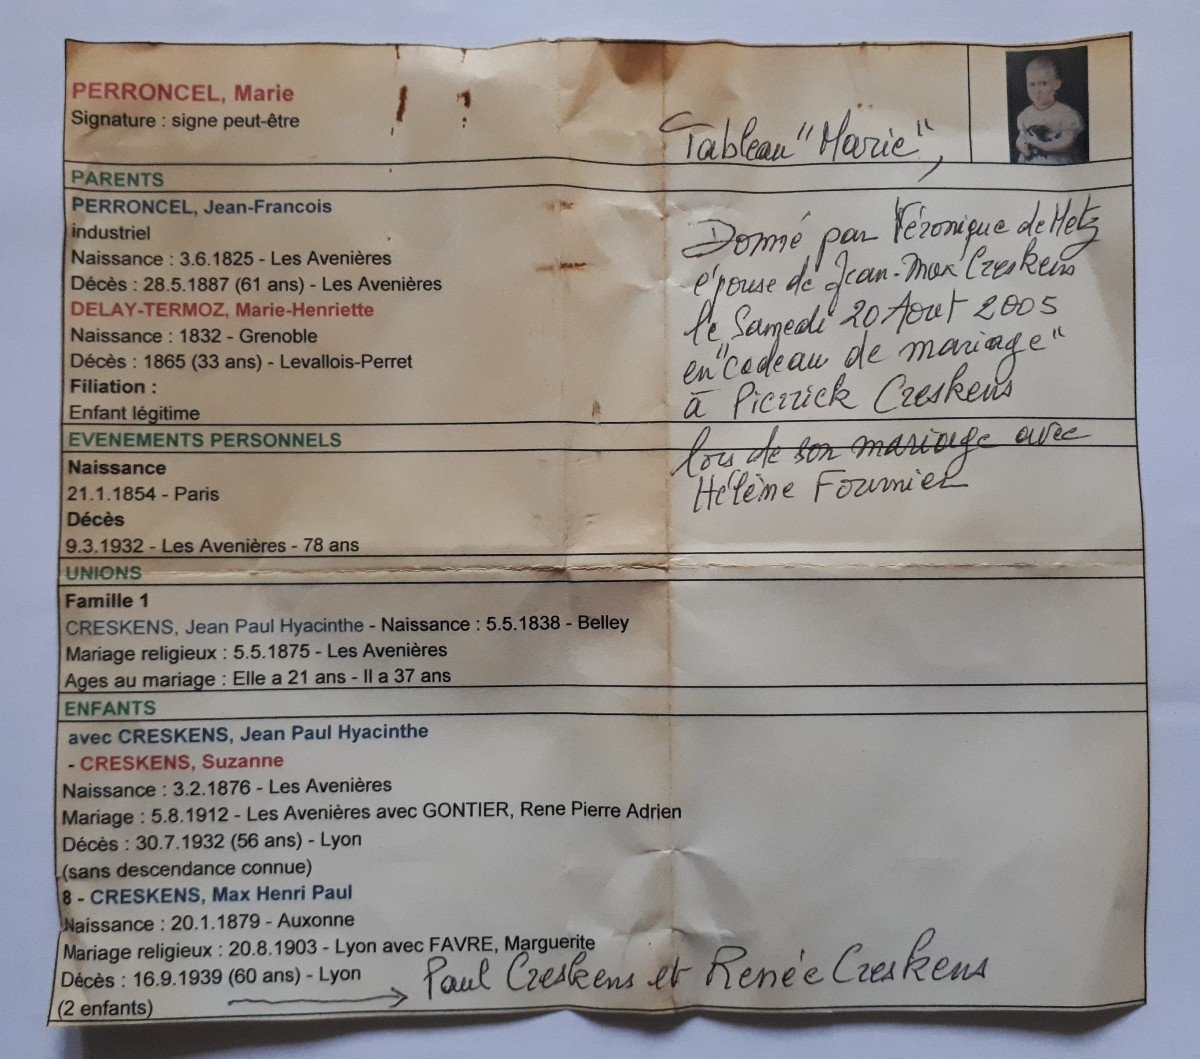 PERRONCEL, Marie
Signature : signe peut-être
Tableau "Marie",
PARENTS
PERRONCEL, Jean-Francois
industriel
Naissance : 3.6.1825 - Les Avenières
Décès : 28.5.1887 (61 ans) - Les Avenières
DELAY-TERMOZ, Marie-Henriette
Naissance : 1832 - Grenoble
Décès : 1865 (33 ans) - Levallois-Perret
Filiation :
Enfant légitime
Donné par Véronique de Metz
épouse de Jean-Max Creskens
le Samedi 20 Aout 2005
en "cadeau de mariage"
à Pierrick Creskens
lors de son mariage avec
Hélène Fournier
EVENEMENTS PERSONNELS
Naissance
21.1.1854 - Paris
Décès
9.3.1932 - Les Avenières - 78 ans
UNIONS
Famille 1
CRESKENS, Jean Paul Hyacinthe - Naissance : 5.5.1838 - Belley
Mariage religieux : 5.5.1875 - Les Avenières
Ages au mariage : Elle a 21 ans - Il a 37 ans
ENFANTS
avec CRESKENS, Jean Paul Hyacinthe
- CRESKENS, Suzanne
Naissance : 3.2.1876 - Les Avenières
Mariage : 5.8.1912 - Les Avenières avec GONTIER, Rene Pierre Adrien
Décès : 30.7.1932 (56 ans) - Lyon
(sans descendance connue)
8 - CRESKENS, Max Henri Paul
Naissance : 20.1.1879 - Auxonne
Mariage religieux : 20.8.1903 - Lyon avec FAVRE, Marguerite
Décès : 16.9.1939 (60 ans) - Lyon
(2 enfants) → Paul Creskens et Renée Creskens